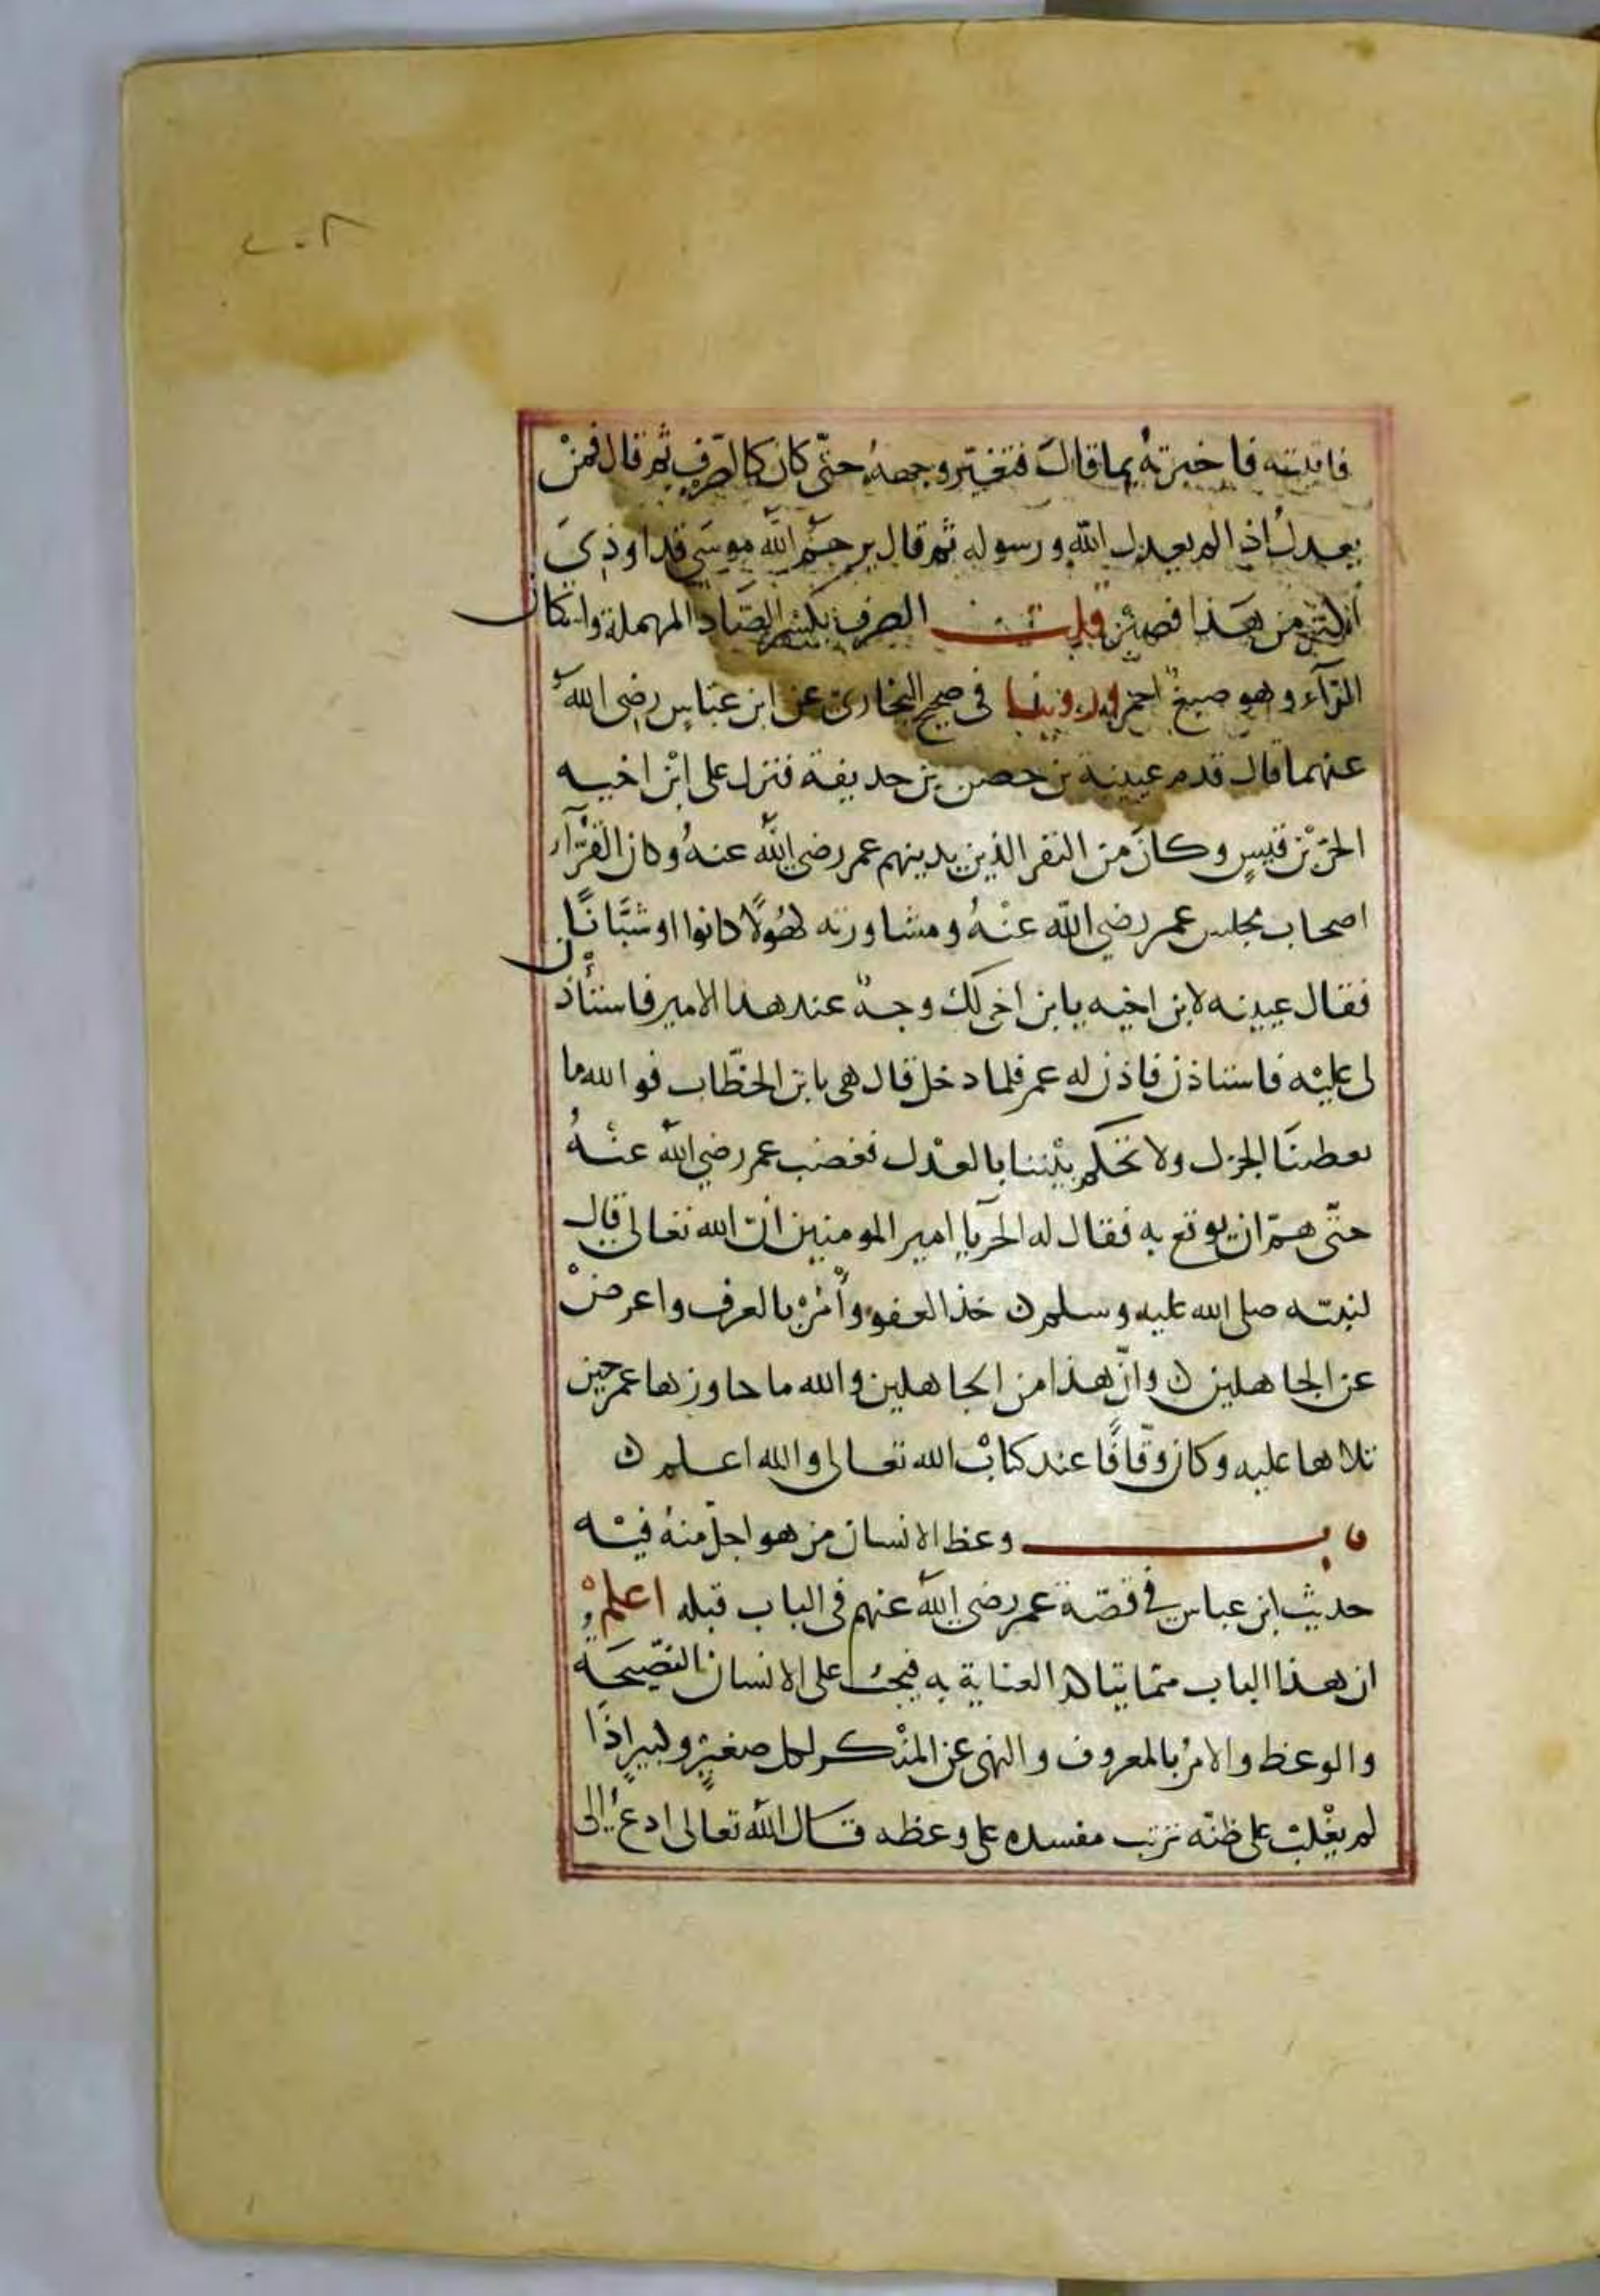 ٢٠٨
فاتيته فاخبرته بما قال فتغيّر وجهه حتّى كان كالصّرف ثم قال فمنْ
يعدل اذا لم يعدل الله ورسوله ثم قال يرحمُ الله موسَى قد اوذِيَ
باكثر من هذا فصبر قلت الصرف بكسر الصّاد المهملة واسكان
الرّآء وهو صبغ احمر وروينا في صحيح البخاري عن ابن عبّاس رضي الله
عنهما قال قدم عيينة بن حصن بن حذيفة فنزل على ابْن اخيه
الحرّ بْن قيسٍ وكانَ من النفر الذين يدنيهم عمر رضي الله عنهُ وكان القرّآء
اصحاب مجلس عمر رضي الله عنْهُ ومشاورته كهُولًا كانوا او شبَّانًا
فقال عيينه لابن اخيه يابن اخى لك وجهٌ عند هذا الامير فاستأذن
لى عليْه فاستاذن فاذن له عمر فلما دخل قال هى يا بن الخطّاب فوالله ما
تعطينَا الجزل ولا تحكم بيْننا بالعدْل فغضب عمر رضي الله عنْهُ
حتّى همّ ان يوقع به فقال له الحرّ يا امير المومنين انّ الله تعالى قال
لنبيّه صلى الله عليه وسلم ن خذ العفو وأْمُرْ بالعرف واعرضْ
عن الجاهلين ن وانّ هذا من الجاهلين والله ما جاوزها عمر حين
تلاها عليه وكان وقّافًا عند كتابْ الله تعالى والله اعلم ن
باب وعظ الانسان من هو اجلّ منهُ فيْه
حديث ابن عباس في قصّة عمر رضي الله عنهم في الباب قبله اعلمْ
ان هذا الباب ممّا تتاكد العناية به فيجبُ على الانسان النصّيحَة
والوعظ والامرُ بالمعروف والنهى عن المنْكر لكل صغيرٍ وكبيرٍ اذَا
لم يغْلبْ على ظنّه ترتب مفسده على وعظه قال اللهُ تعالى ادعُ إلى